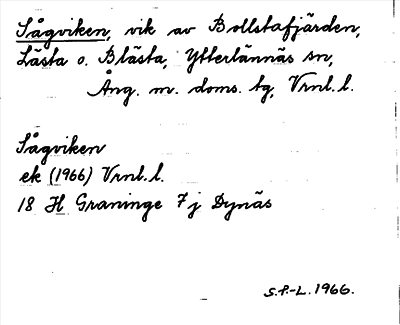 Sågviken, vik av Bollstafjärden,
Lästa o. Blästa, Ytterlännäs sn,
Ång. m. doms. tg, Vrnl. l.
Sågviken
ek (1966) Vrnl. l.
18 H Graninge 7 j Dynäs
S.P.-L. 1966.